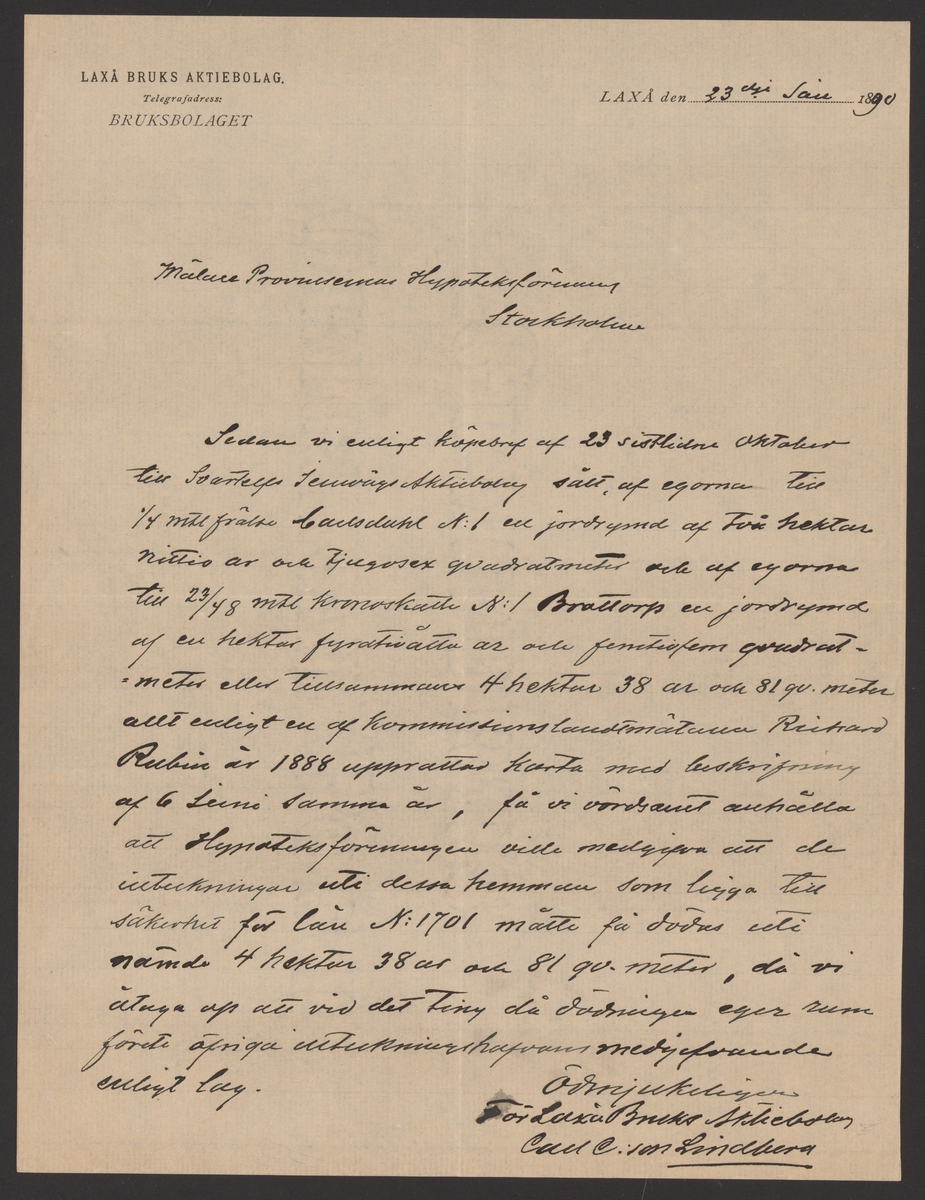 LAXÅ BRUKS AKTIEBOLAG.
Telegrafadress:
BRUKSBOLAGET
LAXÅ den 23 dje Jan 1890
Mälare Provinsernas Hypoteksförening
Stockholm
Sedan vi enligt köpebref af 23 sistlidne Oktober
till Svartelfs Jernvägs Aktiebolag sålt, af egorna till
1/4 mtl frälse Carlsdahl N:1 en jordrymd af Två hektar
nittio ar och tjugosex qvadratmeter och af egorna
till 23/48 mtl kronoskatte N:1 Brottorp en jordrymd
af en hektar fyratioåtta ar och femtiofem qvadrat-
=meter eller tillsammans 4 hektar 38 ar och 81 qv. meter
allt enligt en af Kommissionslandtmätaren Richard
Rubin år 1888 upprättad karta med beskrifning
af 6 Juni samma år, få vi vördsamt anhålla
att Hypoteksföreningen ville medgifva att de
inteckningar uti dessa hemman som ligga till
säkerhet för lån N:1701 måtte få dödas uti
nämde 4 hektar 38 ar och 81 qv. meter, då vi
åtaga oss att vid det Ting då dödningen eger rum
förete öfriga inteckningshafvares medgifvande
enligt lag.
Ödmjukeligen
För Laxå Bruks Aktiebolag
Carl C:son Lindberg